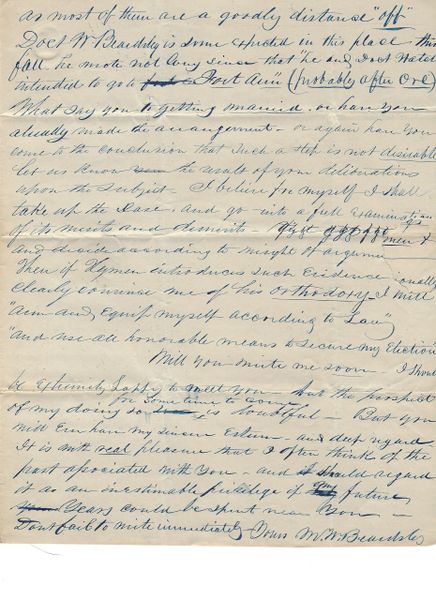 as most of them are a goodly distance "off"
Doct W Beardsley is some expected in this place this
fall he wrote not long since that "he and Doct Nater
intended to go to Fort Ann" (probably after Ore)
What say you to getting married, or have you
already made the arrangement - or again have You
come to the conclusion that such a step is not desirable
Let us know the result of your deliberations
upon the subject - I believe for myself I shall
take up the Case, and go into a full Examination
of its merits and demerits -
and decide according to weight of argume
Then if Hymen introduces such Evidence
clearly convince me of his orthodoxy I will
"Arm and Equip myself according to Law"
"and use all honorable means to secure my Election"
Will you write me soon - I should
be Extremely happy to meet you - but the prospect
of my doing so for some time to come is doubtful - But you
will Ever have my sincere Esteem - and deep regard
It is with real pleasure that I often think of the
past associated with You - and should regard
it as an inestimable privilege if my future
Years could be spent near You -
Dont fail to write immediately Yours M. W. Beardsley